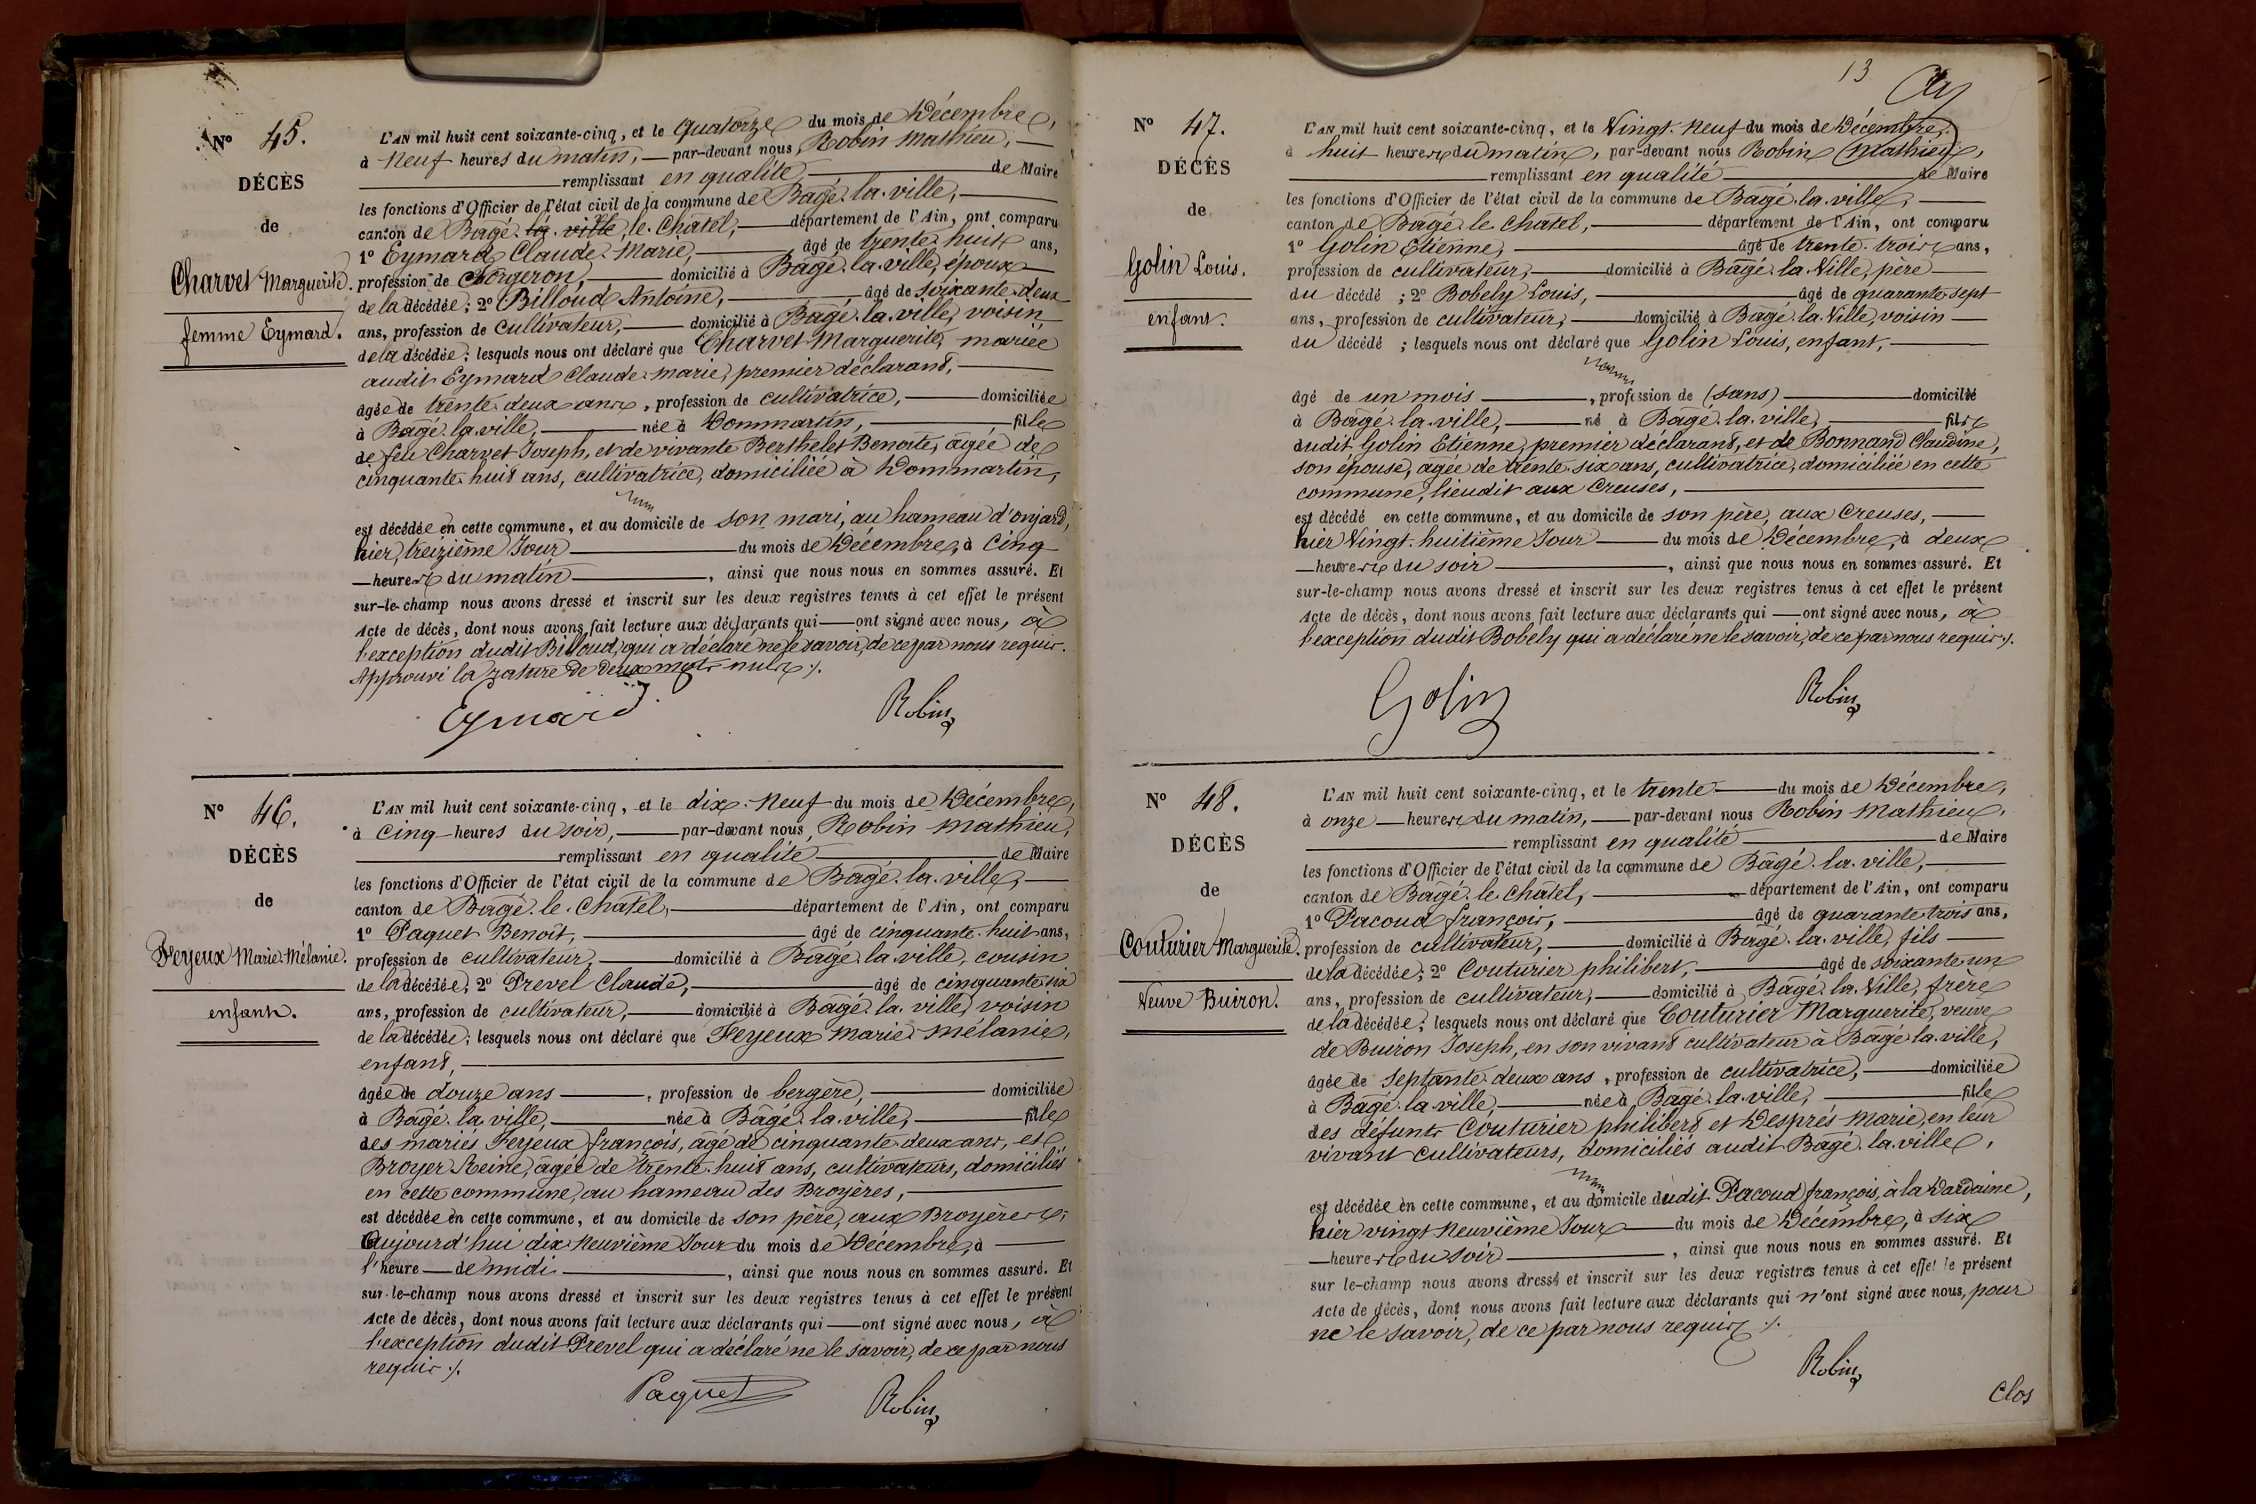 Nº 45.
DÉCÈS
de
Charvet Marguerite.
femme Eymard.
L'AN mil huit cent soixante-cinq, et le quatorze du mois de Décembre,
à neuf heures du matin, par-devant nous, Robin Mathieu,
remplissant en qualité de Maire
les fonctions d'Officier de l'état civil de la commune de Bâgé-la-ville,
canton de Bâgé-la-ville le-Châtel, département de l'Ain, ont comparu
1º Eymard Claude-Marie, âgé de trente-huit ans,
profession de domicilié à Bâgé-la-ville, époux
de la décédée; 2º Billoud Antoine, âgé de soixante-deux
ans, profession de cultivateur, domicilié à Bâgé-la-ville, voisin
de la décédée; lesquels nous ont déclaré que Charvet Marguerite, mariée
audit Eymard Claude-Marie, premier déclarant,
âgée de trente-deux ans, profession de cultivatrice, domiciliée
à Bâgé-la-ville, née à Dommartin, fille
de feu Charvet Joseph, et de vivante Berthelet Benoîte, âgée de
cinquante-huit ans, cultivatrice, domiciliée à Dommartin,
est décédée en cette commune, et au domicile de son mari, au hameau d'onjard,
hier, treizième Jour du mois de Décembre, à cinq
heures du matin, ainsi que nous nous en sommes assuré. Et
sur-le-champ nous avons dressé et inscrit sur les deux registres tenus à cet effet le présent
Acte de décès, dont nous avons fait lecture aux déclarants qui ont signé avec nous, à
l'exception dudit Billoud, qui a déclaré ne le savoir, de ce par nous requis.
Approuvé la rature de deux mots nuls ./.
Eymard Robin
Nº 46.
DÉCÈS
de
Feyeux Marie-Mélanie.
enfant.
L'AN mil huit cent soixante-cinq, et le dix-neuf du mois de Décembre,
à cinq heures du soir, par-devant nous, Robin Mathieu,
remplissant en qualité de Maire
les fonctions d'Officier de l'état civil de la commune de Bâgé-la-ville,
canton de Bâgé-le-Châtel, département de l'Ain, ont comparu
1º Paquet Benoît, âgé de cinquante-huit ans,
profession de cultivateur, domicilié à Bâgé-la-ville, cousin
de la décédée; 2º Prevel Claude, âgé de cinquante-six
ans, profession de cultivateur, domicilié à Bâgé-la-ville, voisin
de la décédée; lesquels nous ont déclaré que Feyeux Marie-Mélanie,
enfant,
âgée de douze ans, profession de bergère, domiciliée
à Bâgé-la-ville, née à Bâgé-la-ville, fille
des mariés Feyeux françois, âgé de cinquante-deux ans, et
Broyer Reine, âgée de trente-huit ans, cultivateurs, domiciliés
en cette commune, au hameau des Broyères,
est décédée en cette commune, et au domicile de son père, aux Broyères,
aujourd'hui dix-neuvième Jour du mois de Décembre, à
l'heure de midi, ainsi que nous nous en sommes assuré. Et
sur-le-champ nous avons dressé et inscrit sur les deux registres tenus à cet effet le présent
Acte de décès, dont nous avons fait lecture aux déclarants qui ont signé avec nous, à
l'exception dudit Prevel qui a déclaré ne le savoir, de ce par nous
requis ./.
Paquet Robin
13
Nº 47.
DÉCÈS
de
Golin Louis.
enfant.
L'AN mil huit cent soixante-cinq, et le Vingt-neuf du mois de Décembre,
à huit heures du matin, par-devant nous Robin Mathieu,
remplissant en qualité de Maire
les fonctions d'Officier de l'état civil de la commune de Bâgé-la-ville,
canton de Bâgé-le-Châtel, département de l'Ain, ont comparu
1º Golin Etienne, âgé de trente-trois ans,
profession de cultivateur, domicilié à Bâgé-la-Ville, père
du décédé; 2º Bobely Louis, âgé de quarante-sept
ans, profession de cultivateur, domicilié à Bâgé-la-Ville, voisin
du décédé; lesquels nous ont déclaré que Golin Louis, enfant,
âgé de un mois, profession de (sans) domicilié
à Bâgé-la-ville, né à Bâgé-la-ville, fils
dudit Golin Etienne, premier déclarant, et de Bonnand Claudine,
son épouse, âgée de trente-six ans, cultivatrice, domiciliée en cette
commune, lieudit aux Creuses,
est décédé en cette commune, et au domicile de son père, aux Creuses,
hier Vingt-huitième Jour du mois de Décembre, à deux
heures du soir, ainsi que nous nous en sommes assuré. Et
sur-le-champ nous avons dressé et inscrit sur les deux registres tenus à cet effet le présent
Acte de décès, dont nous avons fait lecture aux déclarants qui ont signé avec nous, à
l'exception dudit Bobely qui a déclaré ne le savoir, de ce par nous requis ./.
Golin Robin
Nº 48.
DÉCÈS
de
Couturier Marguerite.
Veuve Buiron.
L'AN mil huit cent soixante-cinq, et le trente du mois de Décembre,
à onze heures du matin, par-devant nous Robin Mathieu,
remplissant en qualité de Maire
les fonctions d'Officier de l'état civil de la commune de Bâgé-la-ville,
canton de Bâgé-le-Châtel, département de l'Ain, ont comparu
1º Pacoud françois, âgé de quarante-trois ans,
profession de cultivateur, domicilié à Bâgé-la-ville, fils
de la décédée; 2º Couturier philibert, âgé de soixante-un
ans, profession de cultivateur, domicilié à Bâgé-la-Ville, frère
de la décédée; lesquels nous ont déclaré que Couturier Marguerite, veuve
de Buiron Joseph, en son vivant cultivateur à Bâgé-la-ville,
âgée de septante-deux ans, profession de cultivatrice, domiciliée
à Bâgé-la-ville, née à Bâgé-la-ville, fille
des défunts Couturier philibert et Després Marie, en leur
vivant cultivateurs, domiciliés audit Bâgé-la-ville,
est décédée en cette commune, et au domicile dudit Pacoud françois, à la Dardaine,
hier vingt-neuvième Jour du mois de Décembre, à six
heures du soir, ainsi que nous nous en sommes assuré. Et
sur-le-champ nous avons dressé et inscrit sur les deux registres tenus à cet effet le présent
Acte de décès, dont nous avons fait lecture aux déclarants qui n'ont signé avec nous, pour
ne le savoir, de ce par nous requis ./.
Robin
Clos